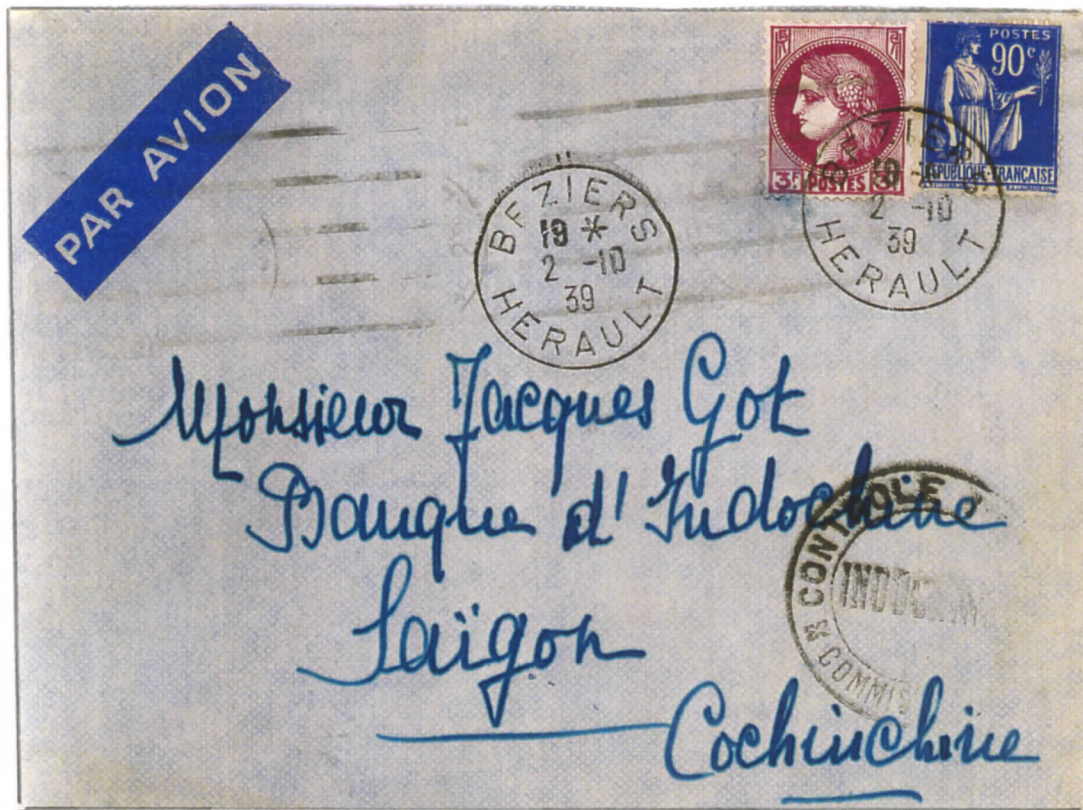 PAR AVION
POSTES
90c
3F POSTES 3F
REPUBLIQUE-FRANÇAISE
BEZIERS
19 *
2 -10
39
HERAULT
BEZIERS
19
2 -10
39
HERAULT
Monsieur Jacques Got
Banque d'Indochine
Saïgon
Cochinchine
CONTROLE
COMMIS